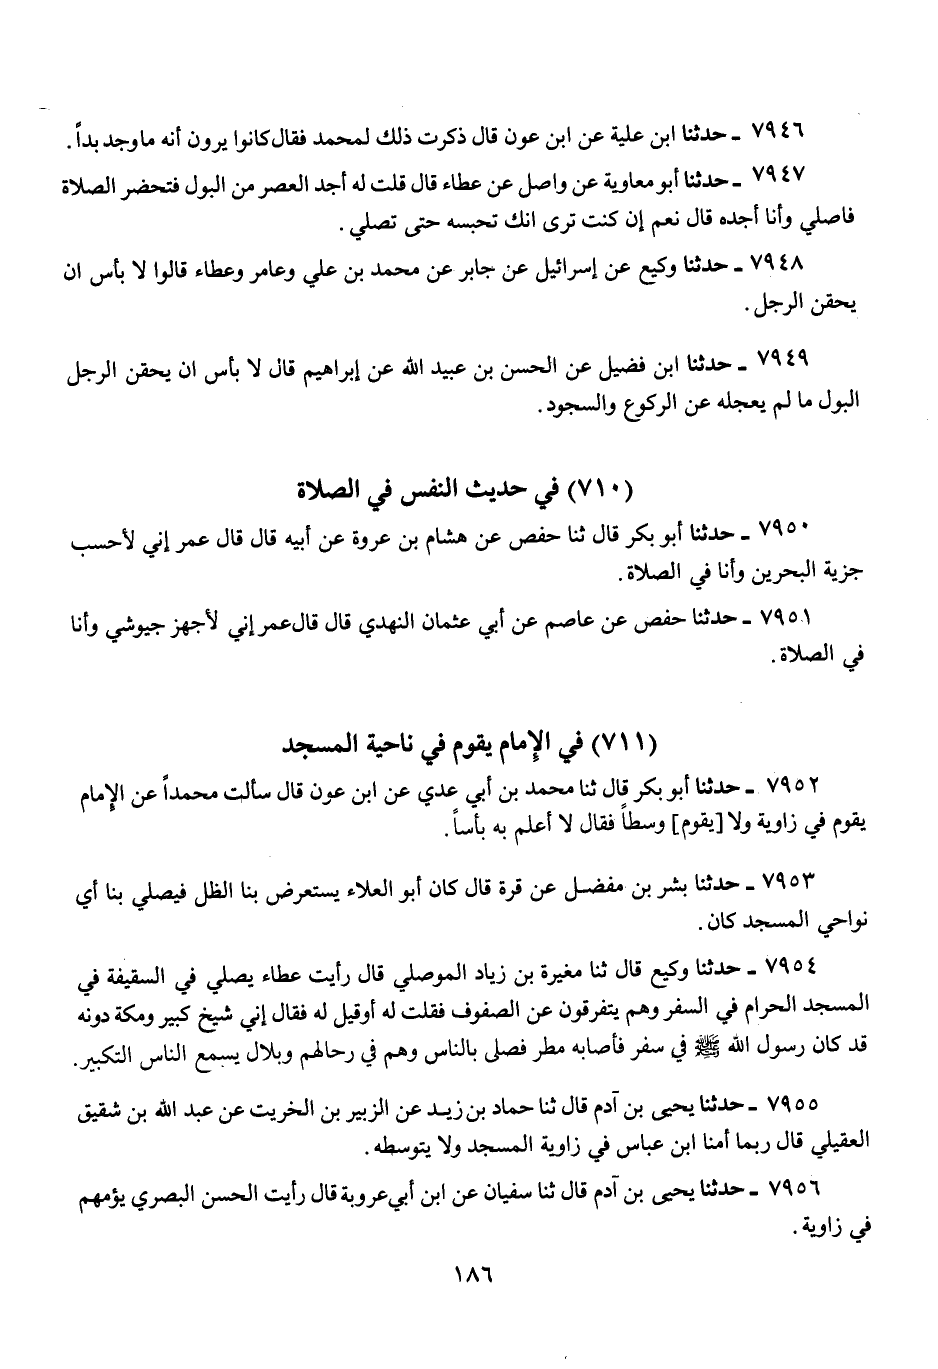 ٧٩٤٦ ـ حدثنا ابن علية عن ابن عون قال ذكرت ذلك لمحمد فقال كانوا يرون أنه ما وجد بداً .
٧٩٤٧ ـ حدثنا أبو معاوية عن واصل عن عطاء قال قلت له أجد العصر من البول فتحضر الصلاة
فاصلي وأنا أجده قال نعم إن كنت ترى انك تحبسه حتى تصلي .
٧٩٤٨ ـ حدثنا وكيع عن إسرائيل عن جابر عن محمد بن علي وعامر وعطاء قالوا لا بأس ان
يحقن الرجل .
٧٩٤٩ ـ حدثنا ابن فضيل عن الحسن بن عبيد الله عن إبراهيم قال لا بأس ان يحقن الرجل
البول ما لم يعجله عن الركوع والسجود .
(٧١٠) في حديث النفس في الصلاة
٧٩٥٠ ـ حدثنا أبو بكر قال ثنا حفص عن هشام بن عروة عن أبيه قال قال عمر إني لأحسب
جزية البحرين وأنا في الصلاة .
٧٩٥١ ـ حدثنا حفص عن عاصم عن أبي عثمان النهدي قال قال عمر إني لأجهز جيوشي وأنا
في الصلاة .
(٧١١) في الإمام يقوم في ناحية المسجد
٧٩٥٢ ـ حدثنا أبو بكر قال ثنا محمد بن أبي عدي عن ابن عون قال سألت محمداً عن الإمام
يقوم في زاوية ولا [يقوم] وسطاً فقال لا أعلم به بأساً .
٧٩٥٣ ـ حدثنا بشر بن مفضل عن قرة قال كان أبو العلاء يستعرض بنا الظل فيصلي بنا أي
نواحي المسجد كان .
٧٩٥٤ ـ حدثنا وكيع قال ثنا مغيرة بن زياد الموصلي قال رأيت عطاء يصلي في السقيفة في
المسجد الحرام في السفر وهم يتفرقون عن الصفوف فقلت له أوقيل له فقال إني شيخ كبير ومكة دونه
قد كان رسول الله ﷺ في سفر فأصابه مطر فصلى بالناس وهم في رحالهم وبلال يسمع الناس التكبير .
٧٩٥٥ ـ حدثنا يحيى بن آدم قال ثنا حماد بن زيد عن الزبير بن الخريت عن عبد الله بن شقيق
العقيلي قال ربما أمنا ابن عباس في زاوية المسجد ولا يتوسطه .
٧٩٥٦ ـ حدثنا يحيى بن آدم قال ثنا سفيان عن ابن أبي عروبة قال رأيت الحسن البصري يؤمهم
في زاوية .
١٨٦